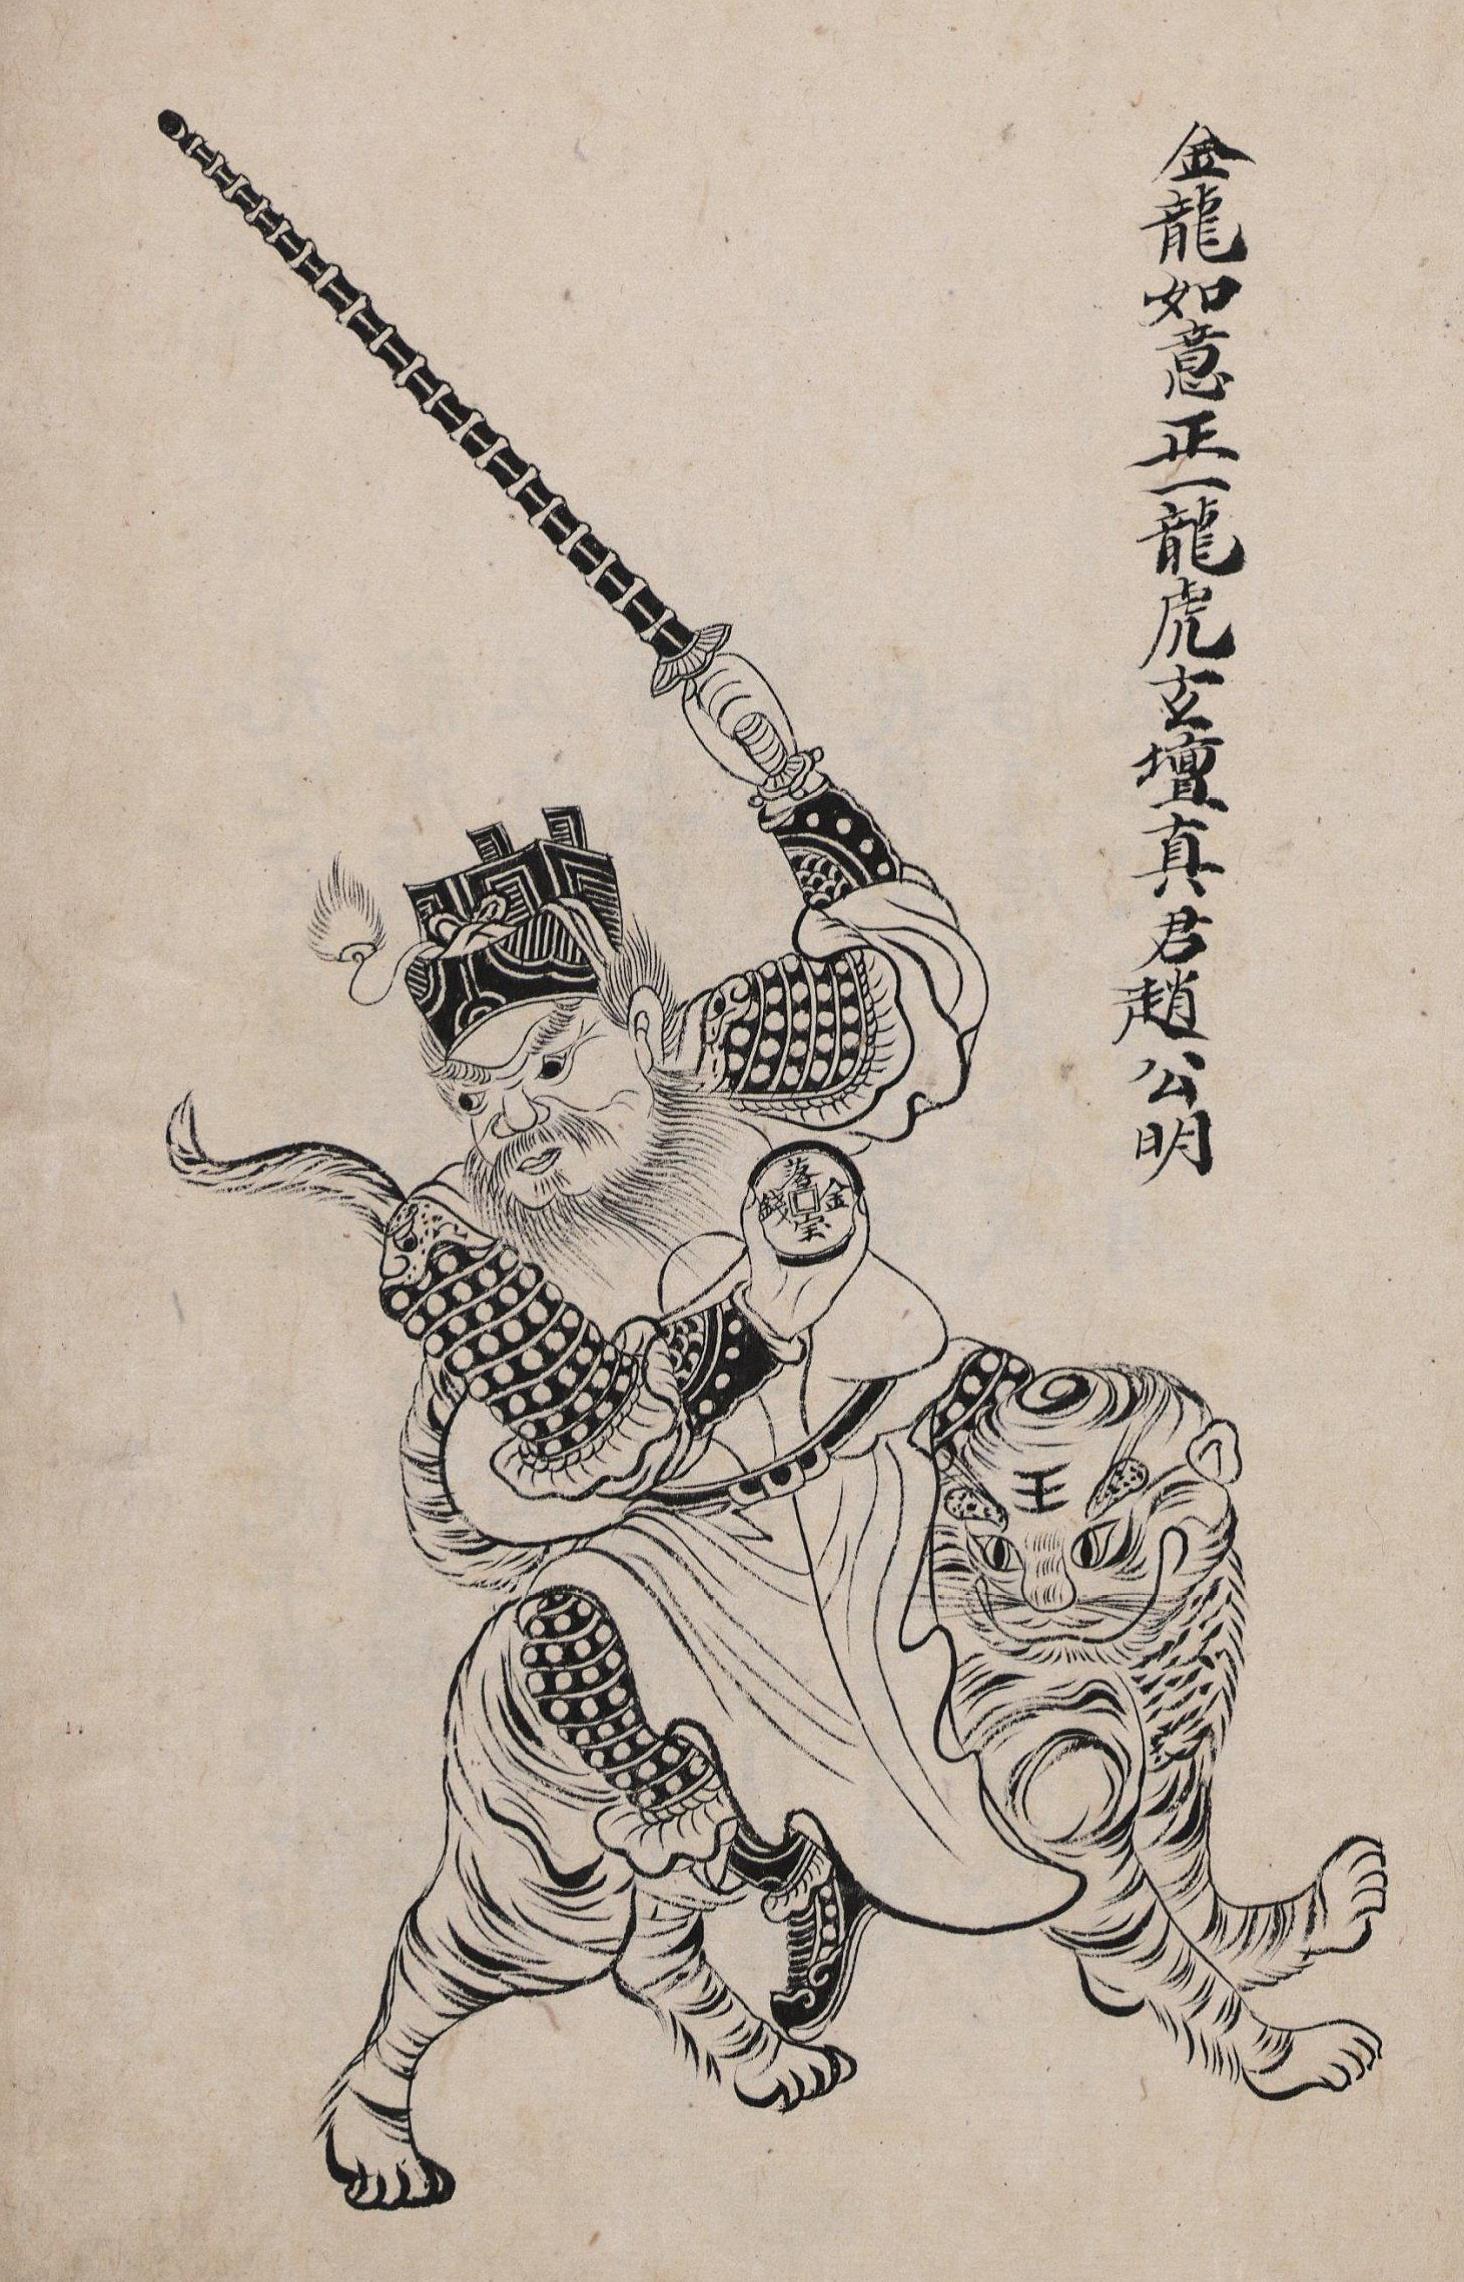 金龍如意正一龍虎玄壇真君趙公明
落宝金錢
王